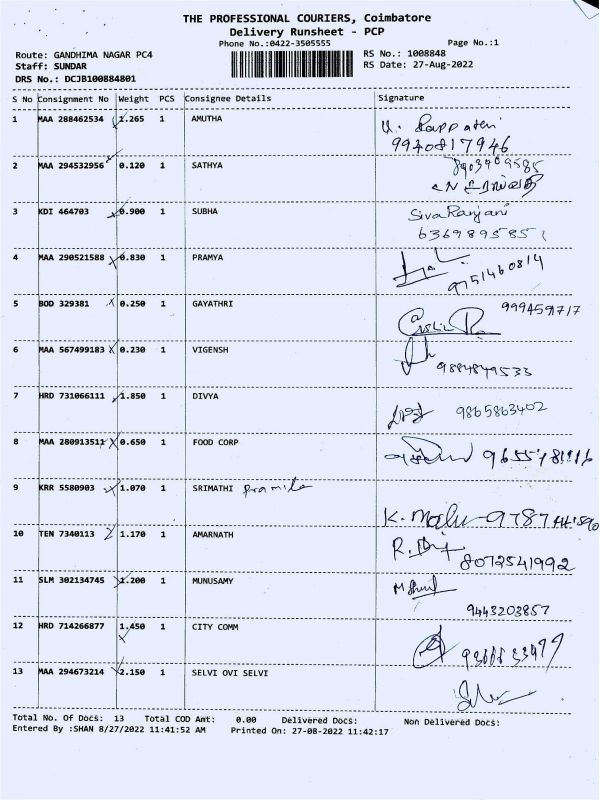 THE PROFESSIONAL COURIERS, Coimbatore
Delivery Runsheet - PCP
Phone No.:0422-3505555
Page No.:1
Route: GANDHIMA NAGAR PC4
RS No.: 1008848
Staff: SUNDAR
RS Date: 27-Aug-2022
DRS No.: DCJB100884801
S No Consignment No Weight PCS Consignee Details Signature
1 MAA 288462534 1.265 1 AMUTHA
9940817946
2 MAA 294532956 0.120 1 SATHYA
8903409585
3 KDI 464703 0.900 1 SUBHA SivaRanjani
6369895851
4 MAA 290521588 0.830 1 PRAMYA
9751460814
5 BOD 329381 0.250 1 GAYATHRI
6 MAA 567499183 0.230 1 VIGENSH
9884849533
7 HRD 731066111 1.850 1 DIVYA
9865863402
8 MAA 280913511 0.650 1 FOOD CORP
9 KRR 5580903 1.070 1 SRIMATHI Pramila
K. Malu
10 TEN 7340113 1.170 1 AMARNATH
8072541992
11 SLM 302134745 1.200 1 MUNUSAMY
9443203857
12 HRD 714266877 1.450 1 CITY COMM
13 MAA 294673214 2.150 1 SELVI OVI SELVI
Total No. Of Docs: 13 Total COD Amt: 0.00 Delivered Docs: Non Delivered Docs:
Entered By :SHAN 8/27/2022 11:41:52 AM Printed On: 27-08-2022 11:42:17